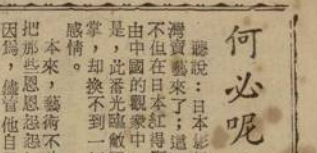 何必呢
聽說：日本影
灣賣藝來了；這
不但在日本紅得
由中國的觀衆中
是，此番光臨敝
掌，却換不到一
感情。
本來，藝術不
把那些恩恩怨怨
因爲，儘管他自